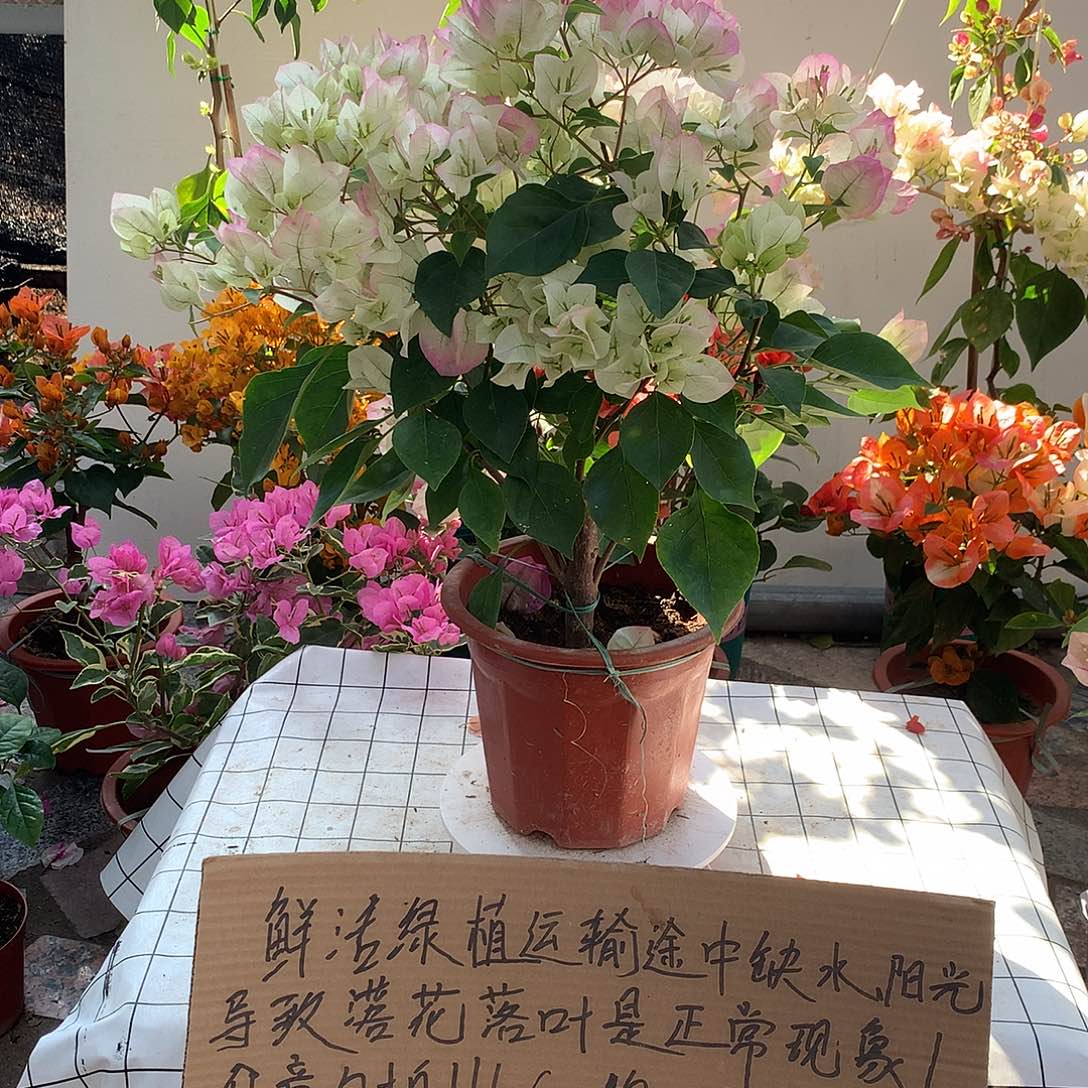 鲜活绿植运输途中缺水、阳光
导致落花落叶是正常现象!